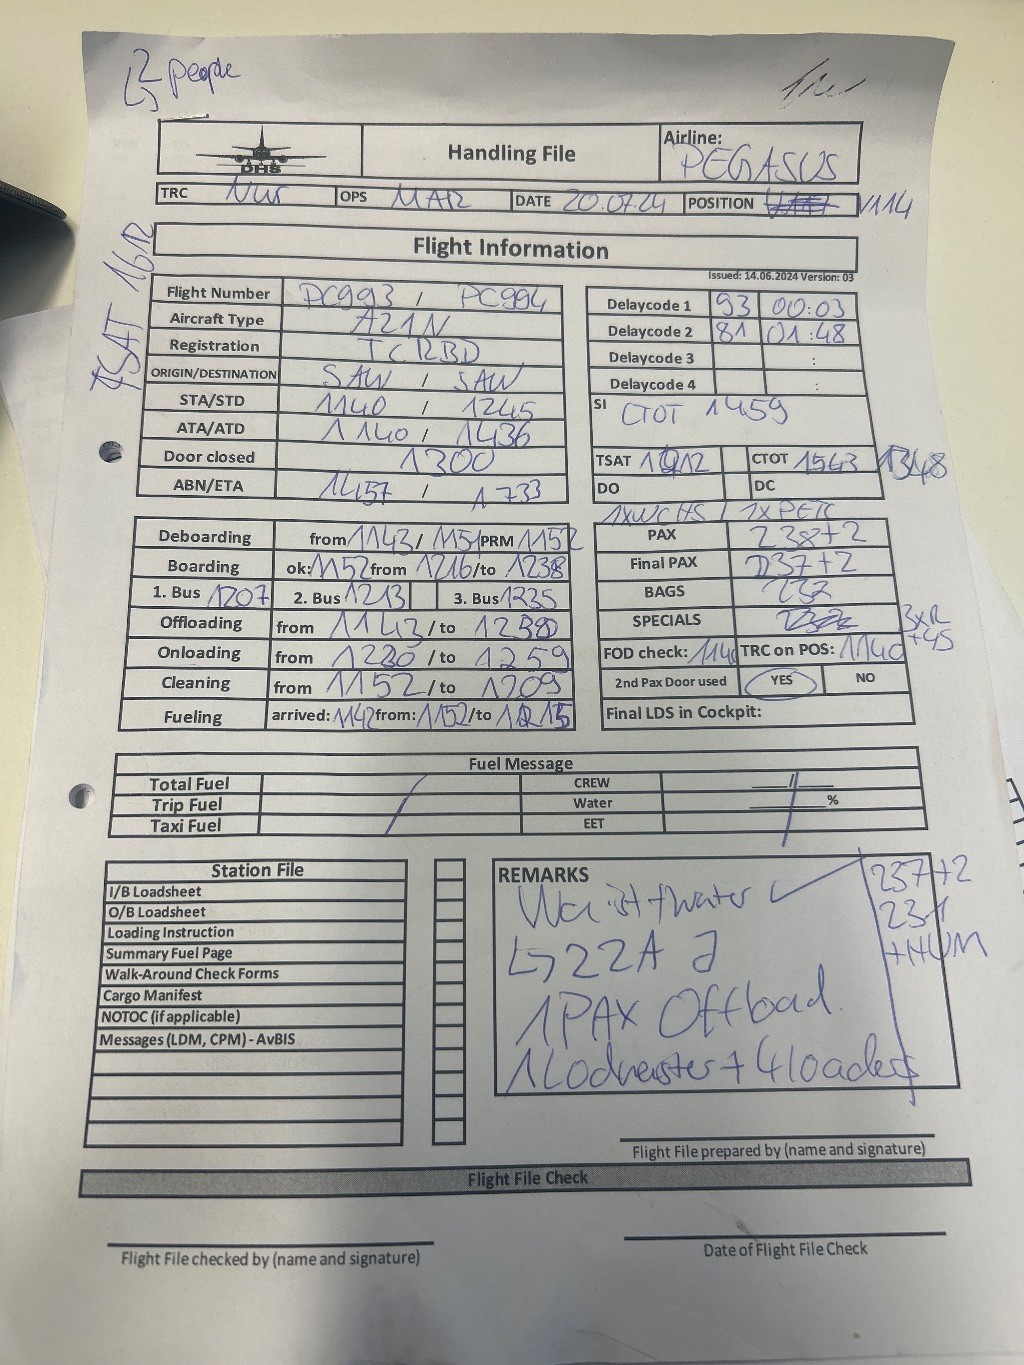 2 people
DHS
Handling File
Airline:
PEGASUS
TRC Nur OPS MAR DATE 20.07.24 POSITION V114
TSAT
Flight Information
Issued: 14.06.2024 Version: 03
Flight Number PC993 / PC994
Aircraft Type A21N
Registration TCRBD
ORIGIN/DESTINATION SAW / SAW
STA/STD 1140 / 1245
ATA/ATD 1140 / 1436
Door closed 1300
ABN/ETA 1457 / 1733
Delaycode 1 93 00:03
Delaycode 2 81 01:48
Delaycode 3 :
Delaycode 4 :
SI CTOT 1459
TSAT CTOT 1543 1348
DO DC
1xWCHS 1xPETC
Deboarding from 1143 / 1151 PRM 1152
Boarding ok: 1152 from 1216 /to 1238
1. Bus 1207 2. Bus 1213 3. Bus 1235
Offloading from 1143 /to 1230
Onloading from 1230 /to 1259
Cleaning from 1152 /to 1209
Fueling arrived: 1142 from: 1152 /to 1215
PAX 238+2
Final PAX 237+2
BAGS 232
SPECIALS 3xR
+45
FOD check: 1140 TRC on POS: 1140
2nd Pax Door used YES NO
Final LDS in Cockpit:
Fuel Message
Total Fuel CREW /
Trip Fuel Water %
Taxi Fuel EET
Station File
I/B Loadsheet
O/B Loadsheet
Loading Instruction
Summary Fuel Page
Walk-Around Check Forms
Cargo Manifest
NOTOC (if applicable)
Messages (LDM, CPM) - AvBIS
REMARKS
+Water
22A
1PAX Offload
+ 4 loaders
237+2
Flight File prepared by (name and signature)
Flight File Check
Flight File checked by (name and signature)
Date of Flight File Check